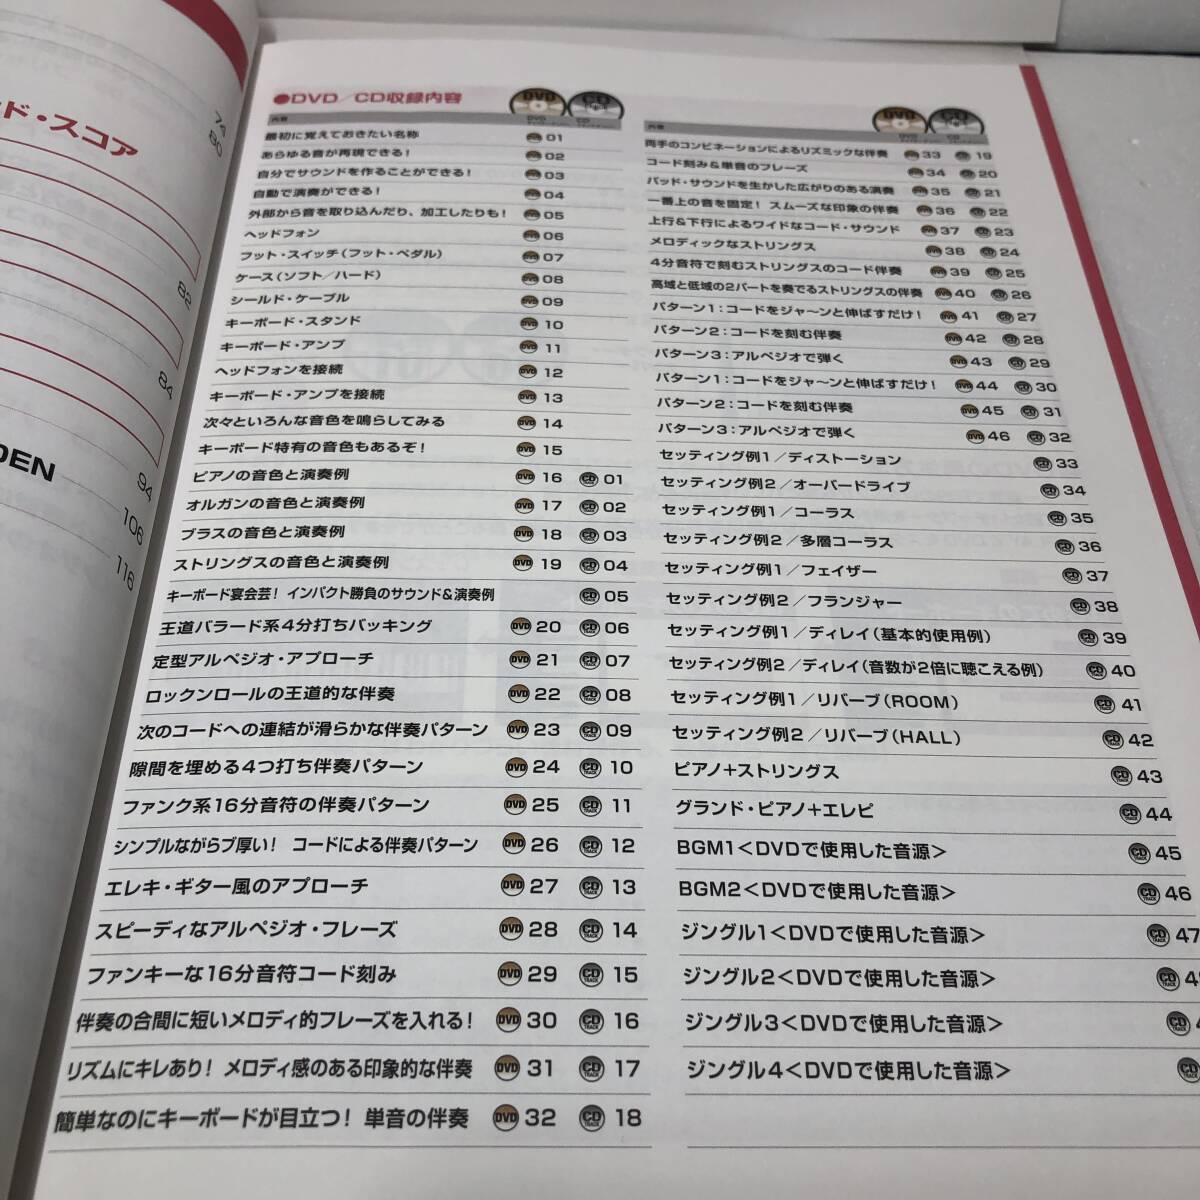 ド・スコア
74
80
82
84
DEN
94
106
116
●DVD／CD収録内容
DVD CD
内容
最初に覚えておきたい名称 DVD 01
あらゆる音が再現できる！ DVD 02
自分でサウンドを作ることができる！ DVD 03
自動で演奏ができる！ DVD 04
外部から音を取り込んだり、加工したりも！ DVD 05
ヘッドフォン DVD 06
フット・スイッチ（フット・ペダル） DVD 07
ケース（ソフト／ハード） DVD 08
シールド・ケーブル DVD 09
キーボード・スタンド DVD 10
キーボード・アンプ DVD 11
ヘッドフォンを接続 DVD 12
キーボード・アンプを接続 DVD 13
次々といろんな音色を鳴らしてみる DVD 14
キーボード特有の音色もあるぞ！ DVD 15
ピアノの音色と演奏例 DVD 16 CD 01
オルガンの音色と演奏例 DVD 17 CD 02
ブラスの音色と演奏例 DVD 18 CD 03
ストリングスの音色と演奏例 DVD 19 CD 04
キーボード宴会芸！ インパクト勝負のサウンド&演奏例 CD 05
王道バラード系4分打ちバッキング DVD 20 CD 06
定型アルペジオ・アプローチ DVD 21 CD 07
ロックンロールの王道的な伴奏 DVD 22 CD 08
次のコードへの連結が滑らかな伴奏パターン DVD 23 CD 09
隙間を埋める4つ打ち伴奏パターン DVD 24 CD 10
ファンク系16分音符の伴奏パターン DVD 25 CD 11
シンプルながらブ厚い！ コードによる伴奏パターン DVD 26 CD 12
エレキ・ギター風のアプローチ DVD 27 CD TRACK 13
スピーディなアルペジオ・フレーズ DVD 28 CD TRACK 14
ファンキーな16分音符コード刻み DVD 29 CD TRACK 15
伴奏の合間に短いメロディ的フレーズを入れる！ DVD 30 CD TRACK 16
リズムにキレあり！ メロディ感のある印象的な伴奏 DVD 31 CD TRACK 17
簡単なのにキーボードが目立つ！ 単音の伴奏 DVD 32 CD TRACK 18
DVD CD
内容
両手のコンビネーションによるリズミックな伴奏 DVD 33 CD 19
コード刻み&単音のフレーズ DVD 34 CD 20
パッド・サウンドを生かした広がりのある演奏 DVD 35 CD 21
一番上の音を固定！ スムーズな印象の伴奏 DVD 36 CD 22
上行&下行によるワイドなコード・サウンド DVD 37 CD 23
メロディックなストリングス DVD 38 CD 24
4分音符で刻むストリングスのコード伴奏 DVD 39 CD 25
高域と低域の2パートを奏でるストリングスの伴奏 DVD 40 CD 26
パターン1：コードをジャ〜ンと伸ばすだけ！ DVD 41 CD 27
パターン2：コードを刻む伴奏 DVD 42 CD 28
パターン3：アルペジオで弾く DVD 43 CD 29
パターン1：コードをジャ〜ンと伸ばすだけ！ DVD 44 CD 30
パターン2：コードを刻む伴奏 DVD 45 CD 31
パターン3：アルペジオで弾く DVD 46 CD 32
セッティング例1／ディストーション CD 33
セッティング例2／オーバードライブ CD 34
セッティング例1／コーラス CD 35
セッティング例2／多層コーラス CD 36
セッティング例1／フェイザー CD 37
セッティング例2／フランジャー CD 38
セッティング例1／ディレイ（基本的使用例） CD 39
セッティング例2／ディレイ（音数が2倍に聴こえる例） CD 40
セッティング例1／リバーブ（ROOM） CD 41
セッティング例2／リバーブ（HALL） CD 42
ピアノ+ストリングス CD 43
グランド・ピアノ+エレピ CD 44
BGM1＜DVDで使用した音源＞ CD 45
BGM2＜DVDで使用した音源＞ CD TRACK 46
ジングル1＜DVDで使用した音源＞ CD TRACK 47
ジングル2＜DVDで使用した音源＞ CD TRACK 4
ジングル3＜DVDで使用した音源＞ CD TRACK
ジングル4＜DVDで使用した音源＞ CD TRACK